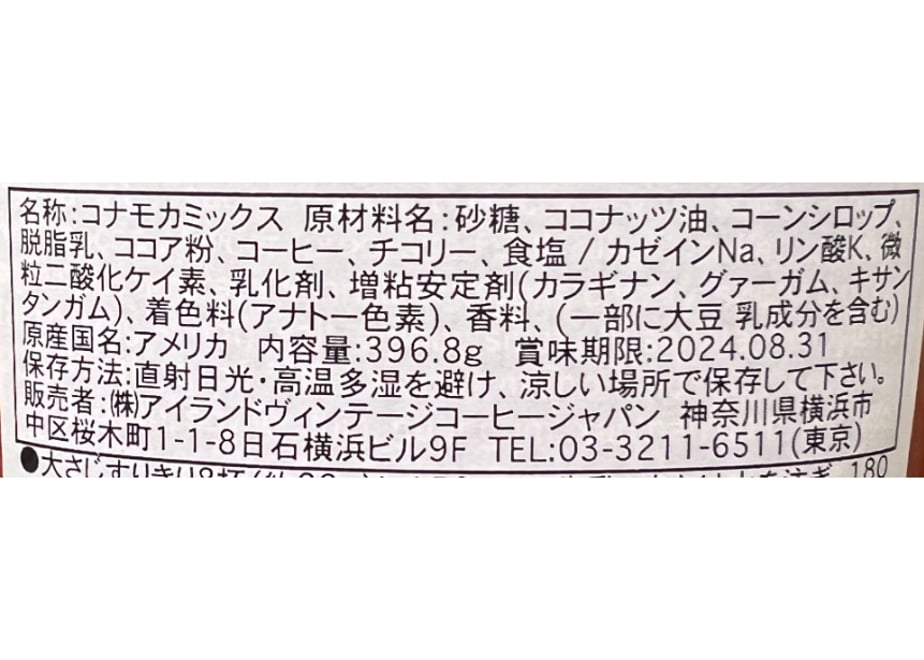 名称:コナモカミックス 原材料名:砂糖、ココナッツ油、コーンシロップ、
脱脂乳、ココア粉、コーヒー、チコリー、食塩 / カゼインNa、リン酸K、微
粒二酸化ケイ素、乳化剤、増粘安定剤(カラギナン、グァーガム、キサン
タンガム)、着色料(アナトー色素)、香料、(一部に大豆 乳成分を含む)
原産国名:アメリカ 内容量:396.8g 賞味期限:2024.08.31
保存方法:直射日光・高温多湿を避け、涼しい場所で保存して下さい。
販売者:㈱アイランドヴィンテージコーヒージャパン 神奈川県横浜市
中区桜木町1-1-8日石横浜ビル9F TEL:03-3211-6511(東京)
●大さじすりきり 180